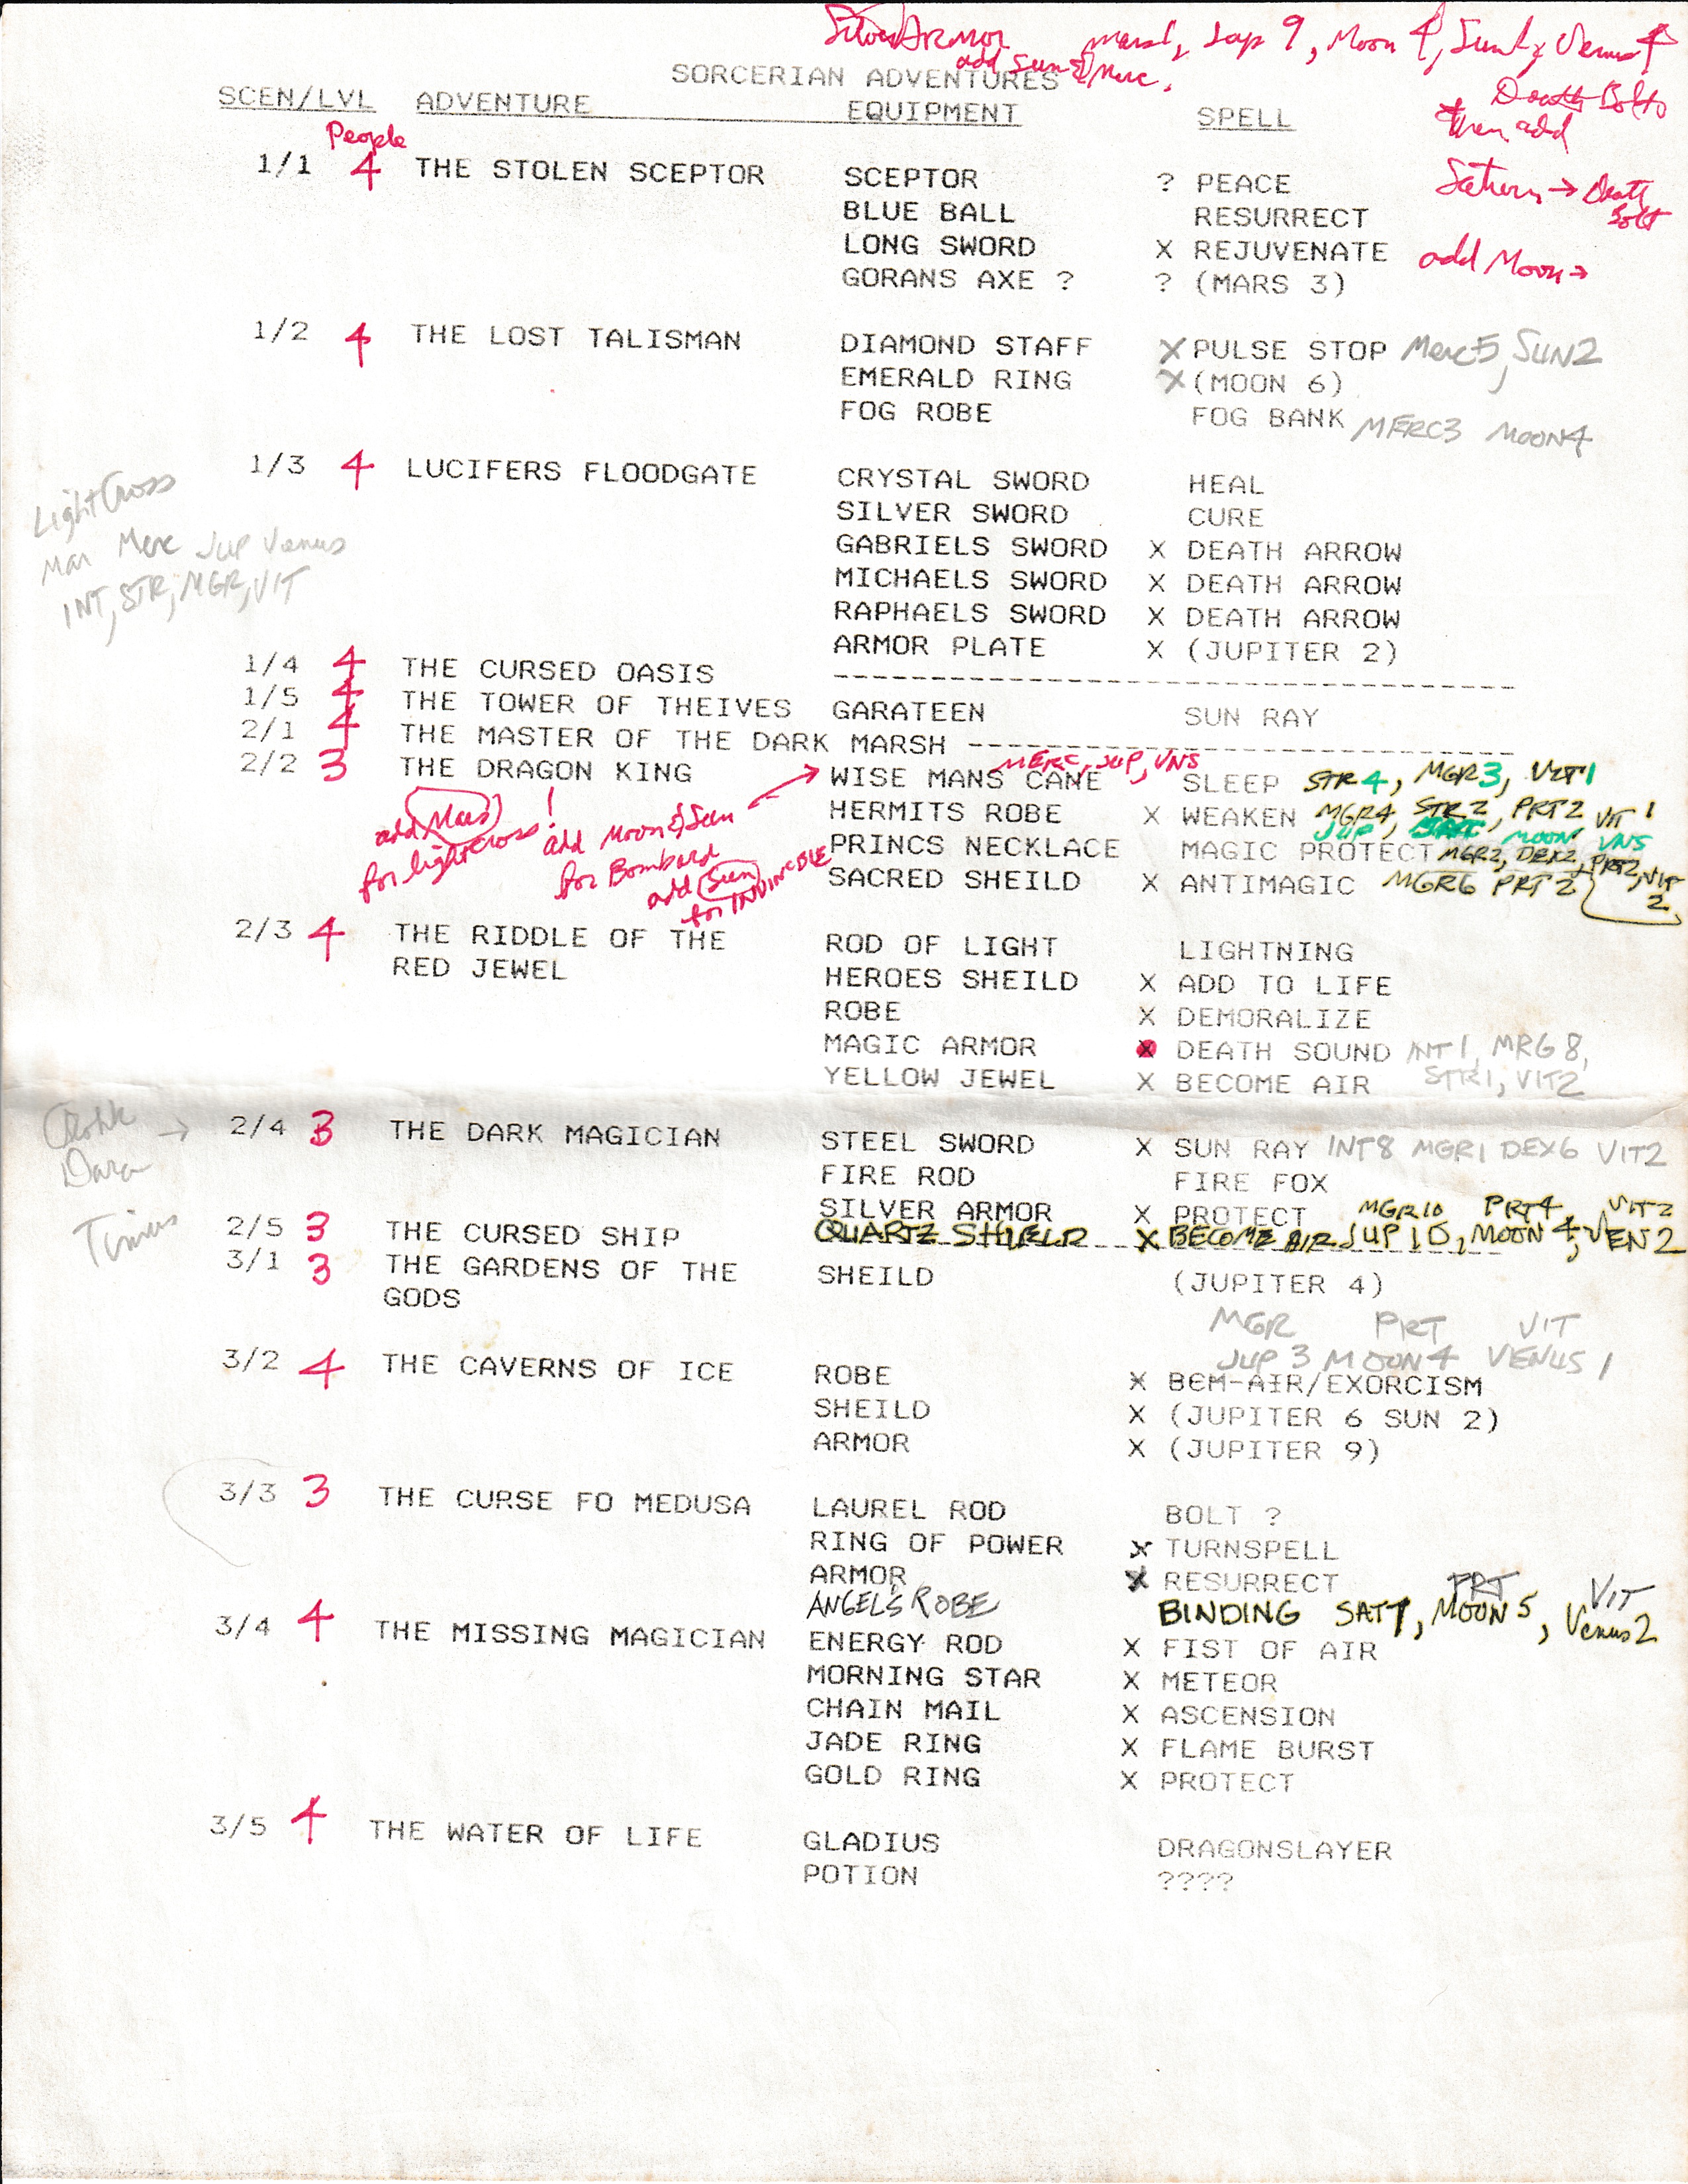 Silver Armor mars 1, Jup 9, Moon 4, Sun 1, Venus 4
add Sun & Merc.
SORCERIAN ADVENTURES
Death Bolt
then add
SCEN/LVL ADVENTURE EQUIPMENT SPELL
People
1/1 4 THE STOLEN SCEPTOR SCEPTOR ? PEACE Saturn → Death Bolt
BLUE BALL RESURRECT
LONG SWORD X REJUVENATE add Moon →
GORANS AXE ? ? (MARS 3)
1/2 4 THE LOST TALISMAN DIAMOND STAFF X PULSE STOP Merc5, SUN2
EMERALD RING X (MOON 6)
FOG ROBE FOG BANK MERC3 MOON4
1/3 4 LUCIFERS FLOODGATE CRYSTAL SWORD HEAL
Light Cross
SILVER SWORD CURE
Mar Merc Jup Venus
GABRIELS SWORD X DEATH ARROW
INT, STR, MGR, VIT
MICHAELS SWORD X DEATH ARROW
RAPHAELS SWORD X DEATH ARROW
ARMOR PLATE X (JUPITER 2)
1/4 4 THE CURSED OASIS ----------------------------------
1/5 4 THE TOWER OF THEIVES GARATEEN SUN RAY
2/1 4 THE MASTER OF THE DARK MARSH ---------------------------
MERC, JUP, VNS
2/2 3 THE DRAGON KING → WISE MANS CANE SLEEP STR4, MGR3, VIT1
HERMITS ROBE X WEAKEN MGR4, STR2, PRT2 VIT 1
JUP, MOON VNS
add Mars!
for lightcross
add Moon & Sun
for Bombard
add Sun
for INVINCIBLE
PRINCS NECKLACE MAGIC PROTECT MGR2, DEX2, PRT2, VIT 2
SACRED SHEILD X ANTIMAGIC MGR6 PRT2
2/3 4 THE RIDDLE OF THE ROD OF LIGHT LIGHTNING
RED JEWEL HEROES SHEILD X ADD TO LIFE
ROBE X DEMORALIZE
MAGIC ARMOR X DEATH SOUND INT 1, MRG 8,
YELLOW JEWEL X BECOME AIR STR1, VIT2
2/4 3 THE DARK MAGICIAN STEEL SWORD X SUN RAY INT8 MGR1 DEX6 VIT2
FIRE ROD FIRE FOX
SILVER ARMOR X PROTECT MGR10 PRT4, VIT2
2/5 3 THE CURSED SHIP QUARTZ SHIELD X BECOME AIR JUP 10, MOON 4, VEN 2
3/1 3 THE GARDENS OF THE SHEILD (JUPITER 4)
GODS
MGR PRT VIT
JUP 3 MOON4 VENUS 1
3/2 4 THE CAVERNS OF ICE ROBE X BEM-AIR/EXORCISM
SHEILD X (JUPITER 6 SUN 2)
ARMOR X (JUPITER 9)
3/3 3 THE CURSE FO MEDUSA LAUREL ROD BOLT ?
RING OF POWER X TURNSPELL
ARMOR X RESURRECT PRT VIT
ANGEL'S ROBE BINDING SAT7, MOON5, Venus2
3/4 4 THE MISSING MAGICIAN ENERGY ROD X FIST OF AIR
MORNING STAR X METEOR
CHAIN MAIL X ASCENSION
JADE RING X FLAME BURST
GOLD RING X PROTECT
3/5 4 THE WATER OF LIFE GLADIUS DRAGONSLAYER
POTION ????